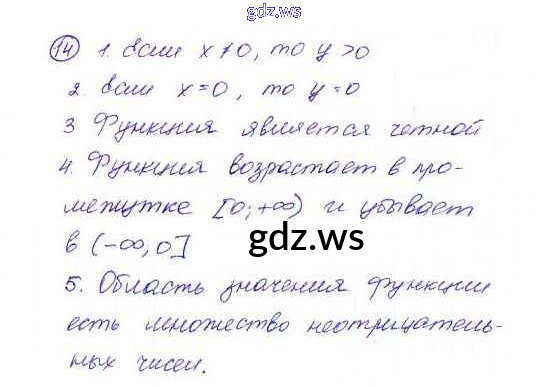 gdz.ws
14 1. Если x ≠ 0, то y > 0
2. Если x = 0, то y = 0
3 Функция является четной
4. Функция возрастает в про-
межутке [0; +∞) и убывает
в (-∞; 0]
gdz.ws
5. Область значения функции
есть множество неотрицатель-
ных чисел.